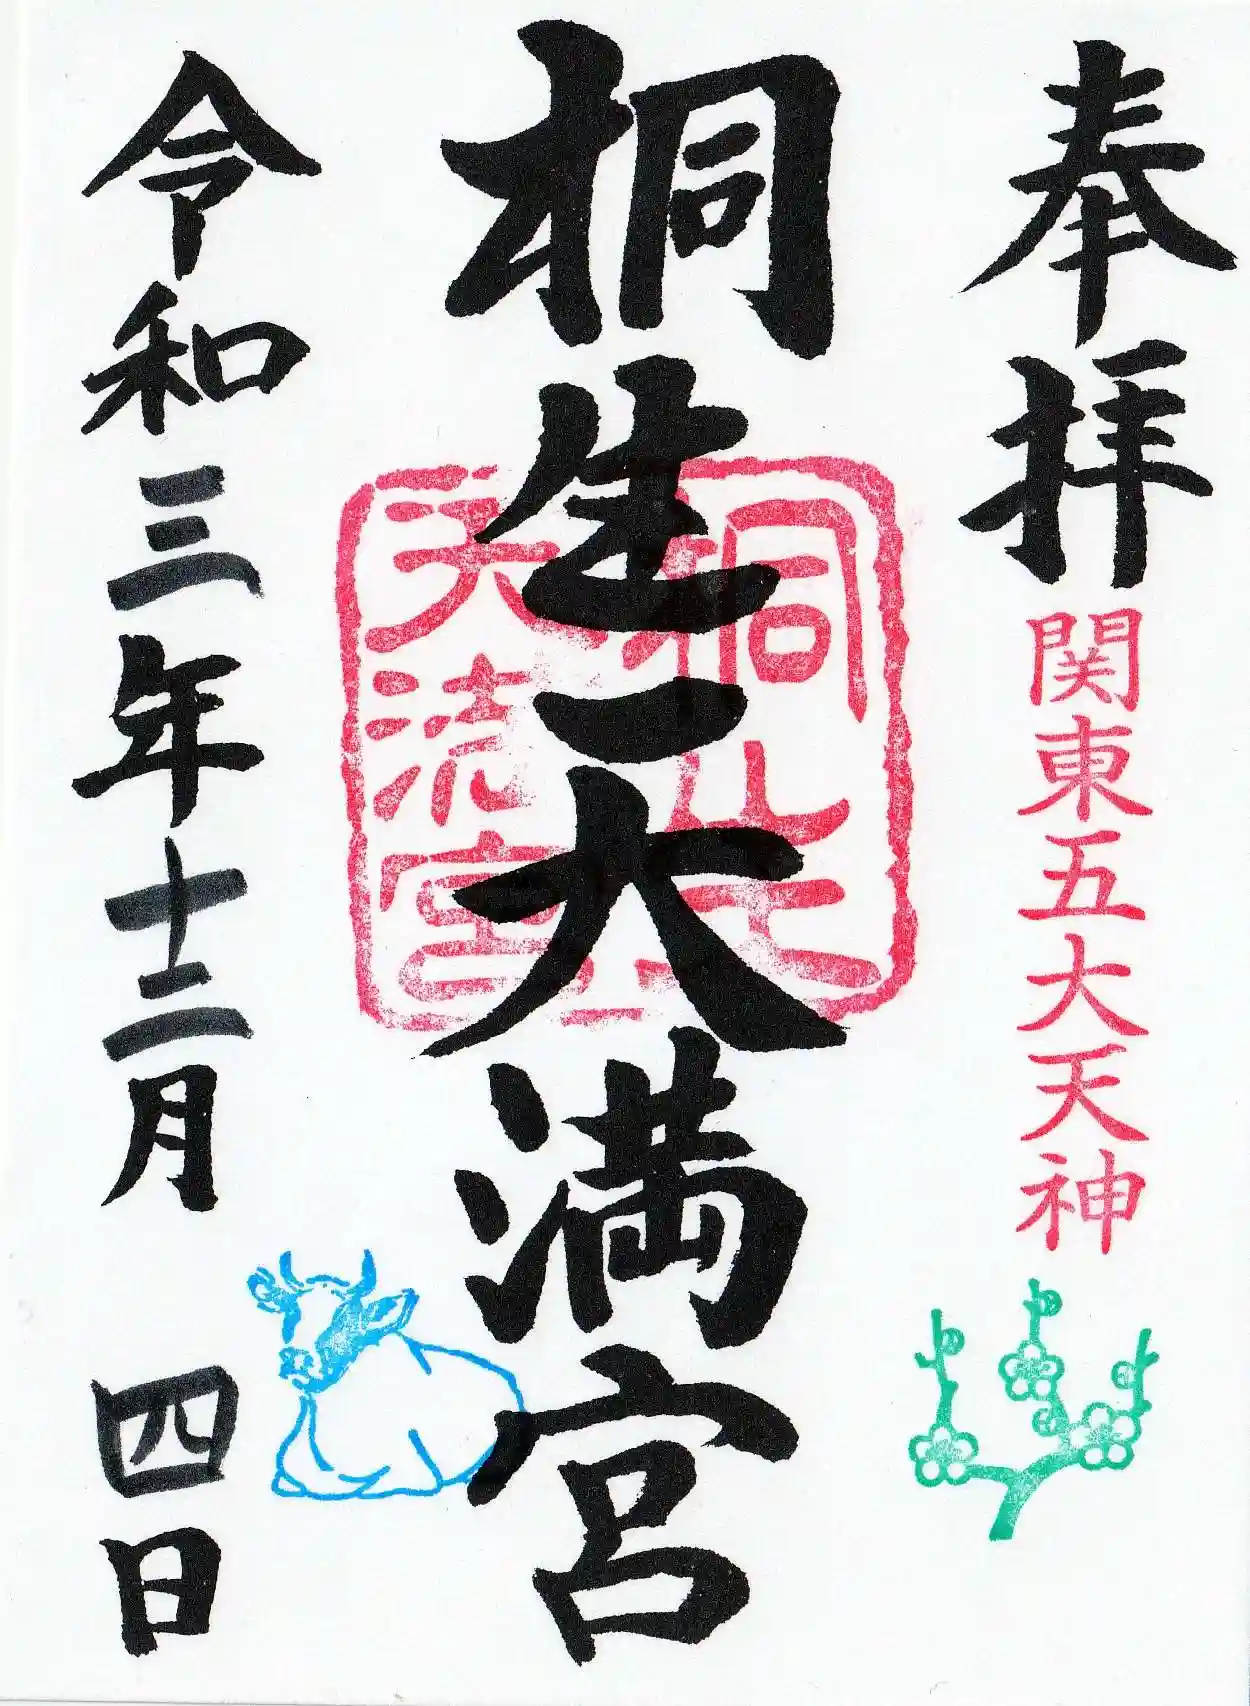 奉拝
関東五大天神
桐生天満宮
桐生
天満宮
令和三年十二月 四日